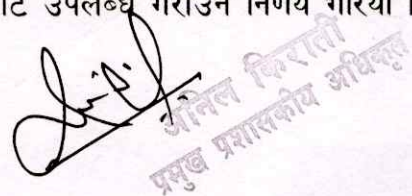 उपलब्ध गराउने निर्णय गरियो ।
अनिल किराती
प्रमुख प्रशासकीय अधिकृत